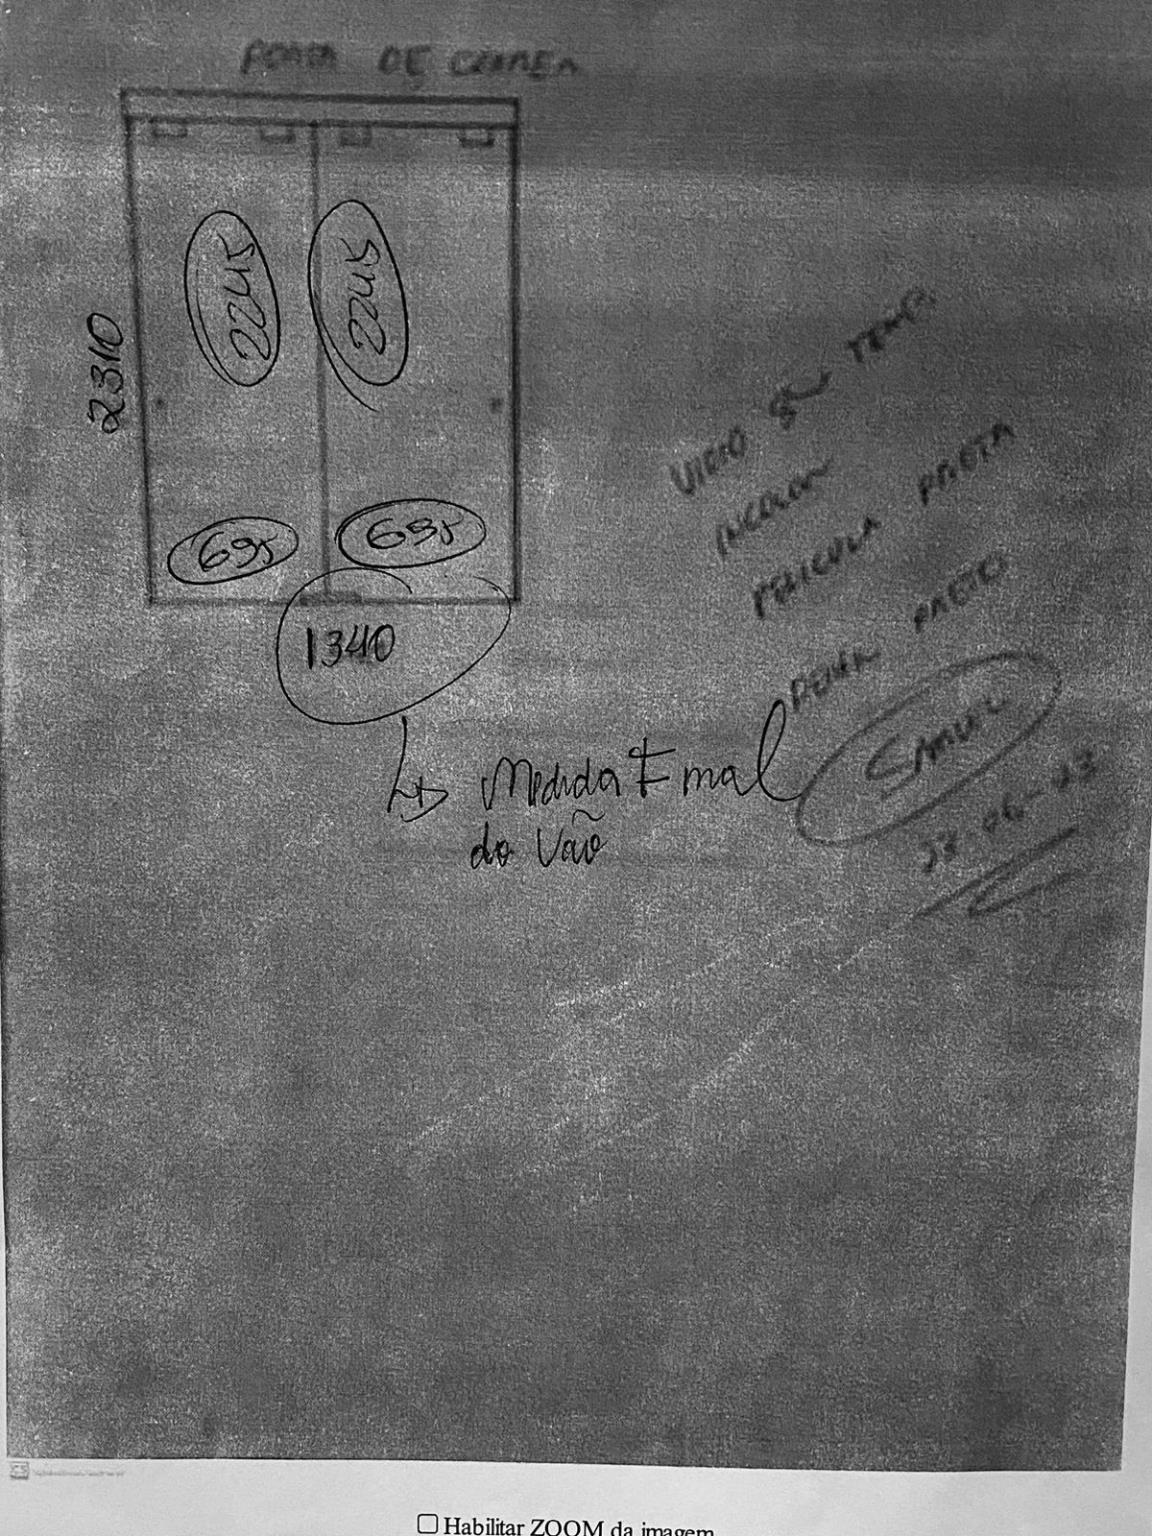 PORTA DE CORRER
2245
2245
2310
695
695
1340
Medida Final
do Vão
VIDRO 8mm TEMP.
INCOLOR
PELICULA PRETA
PRETO
SAMUEL
28-06-23
Habilitar ZOOM da imagem